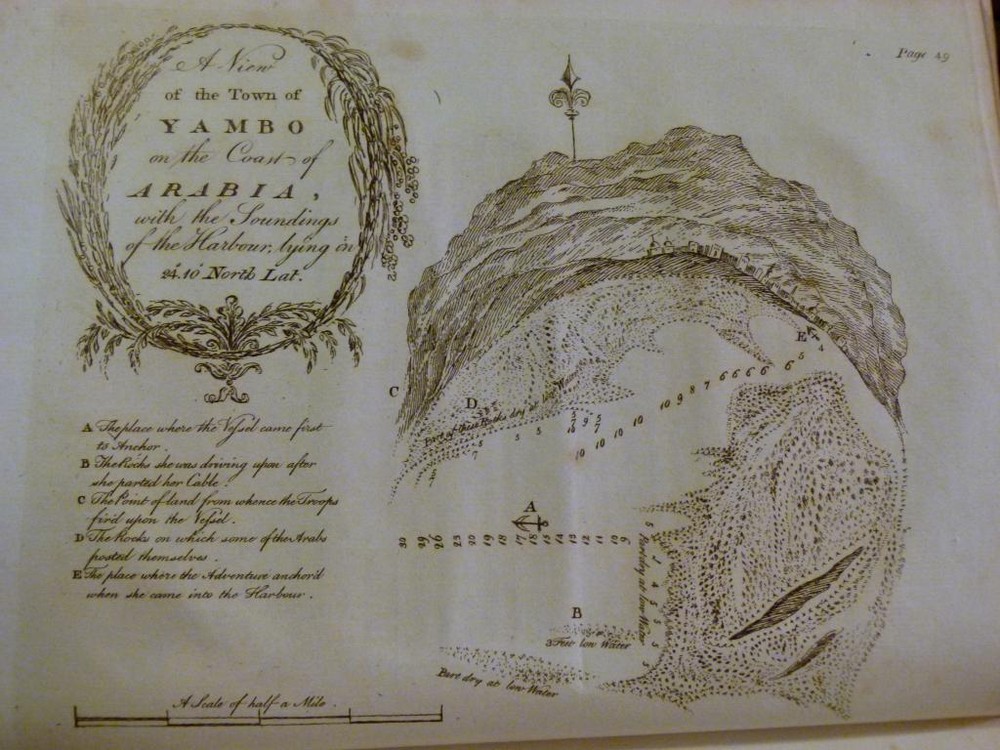 Page 49
A View
of the Town of
YAMBO
on the Coast of
ARABIA,
with the Soundings
of the Harbour, lying in
24.10 North Lat.
A The place where the Vessel came first
to Anchor.
B The Rocks she was driving upon after
she parted her Cable.
C The Point of land from whence the Troops
fir'd upon the Vessel.
D The Rocks on which some of the Arabs
posted themselves.
E The place where the Adventure anchor'd
when she came into the Harbour.
A Scale of half a Mile.
C
D
E
Part of these Rocks dry at low Water
10 9 8 7 6 6 6 6 6 5 4
10 10 10 10
A
30 29 26 23 20 19 18 17 18 15 14 12 12 11 10 9
Part dry at low Water
B
3 Feet low Water
Part dry at low Water